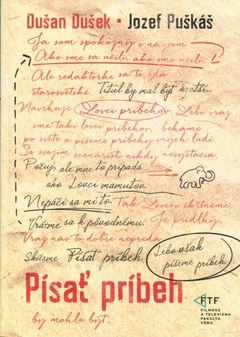 Dušan Dušek • Jozef Puškáš
Ja som spokojný s názvom
Ako sme sa učili, ako sme učili.
Ale redaktorke sa to zdá
starosvetské. Titul by mal byť kratší.
Navrhuje Lovci príbehov. Lebo vraj
sme takí lovci príbehov, beháme
po svete a píšeme príbehy iných ľudí.
So svojím scenárom nikdy
Počuj, ale mne to pripadá
ako Lovci mamutov.
Nepáči sa mi to. Tak Lovcov škrtneme.
Vráťme sa k pôvodnému. Je pridlhý.
Vraj nás to dobre nepredá.
Skúsme Písať príbeh. Lebo však
píšeme príbeh.
Písať príbeh
by mohlo byť.
FTF
FILMOVÁ
A TELEVÍZNA
FAKULTA
VŠMU